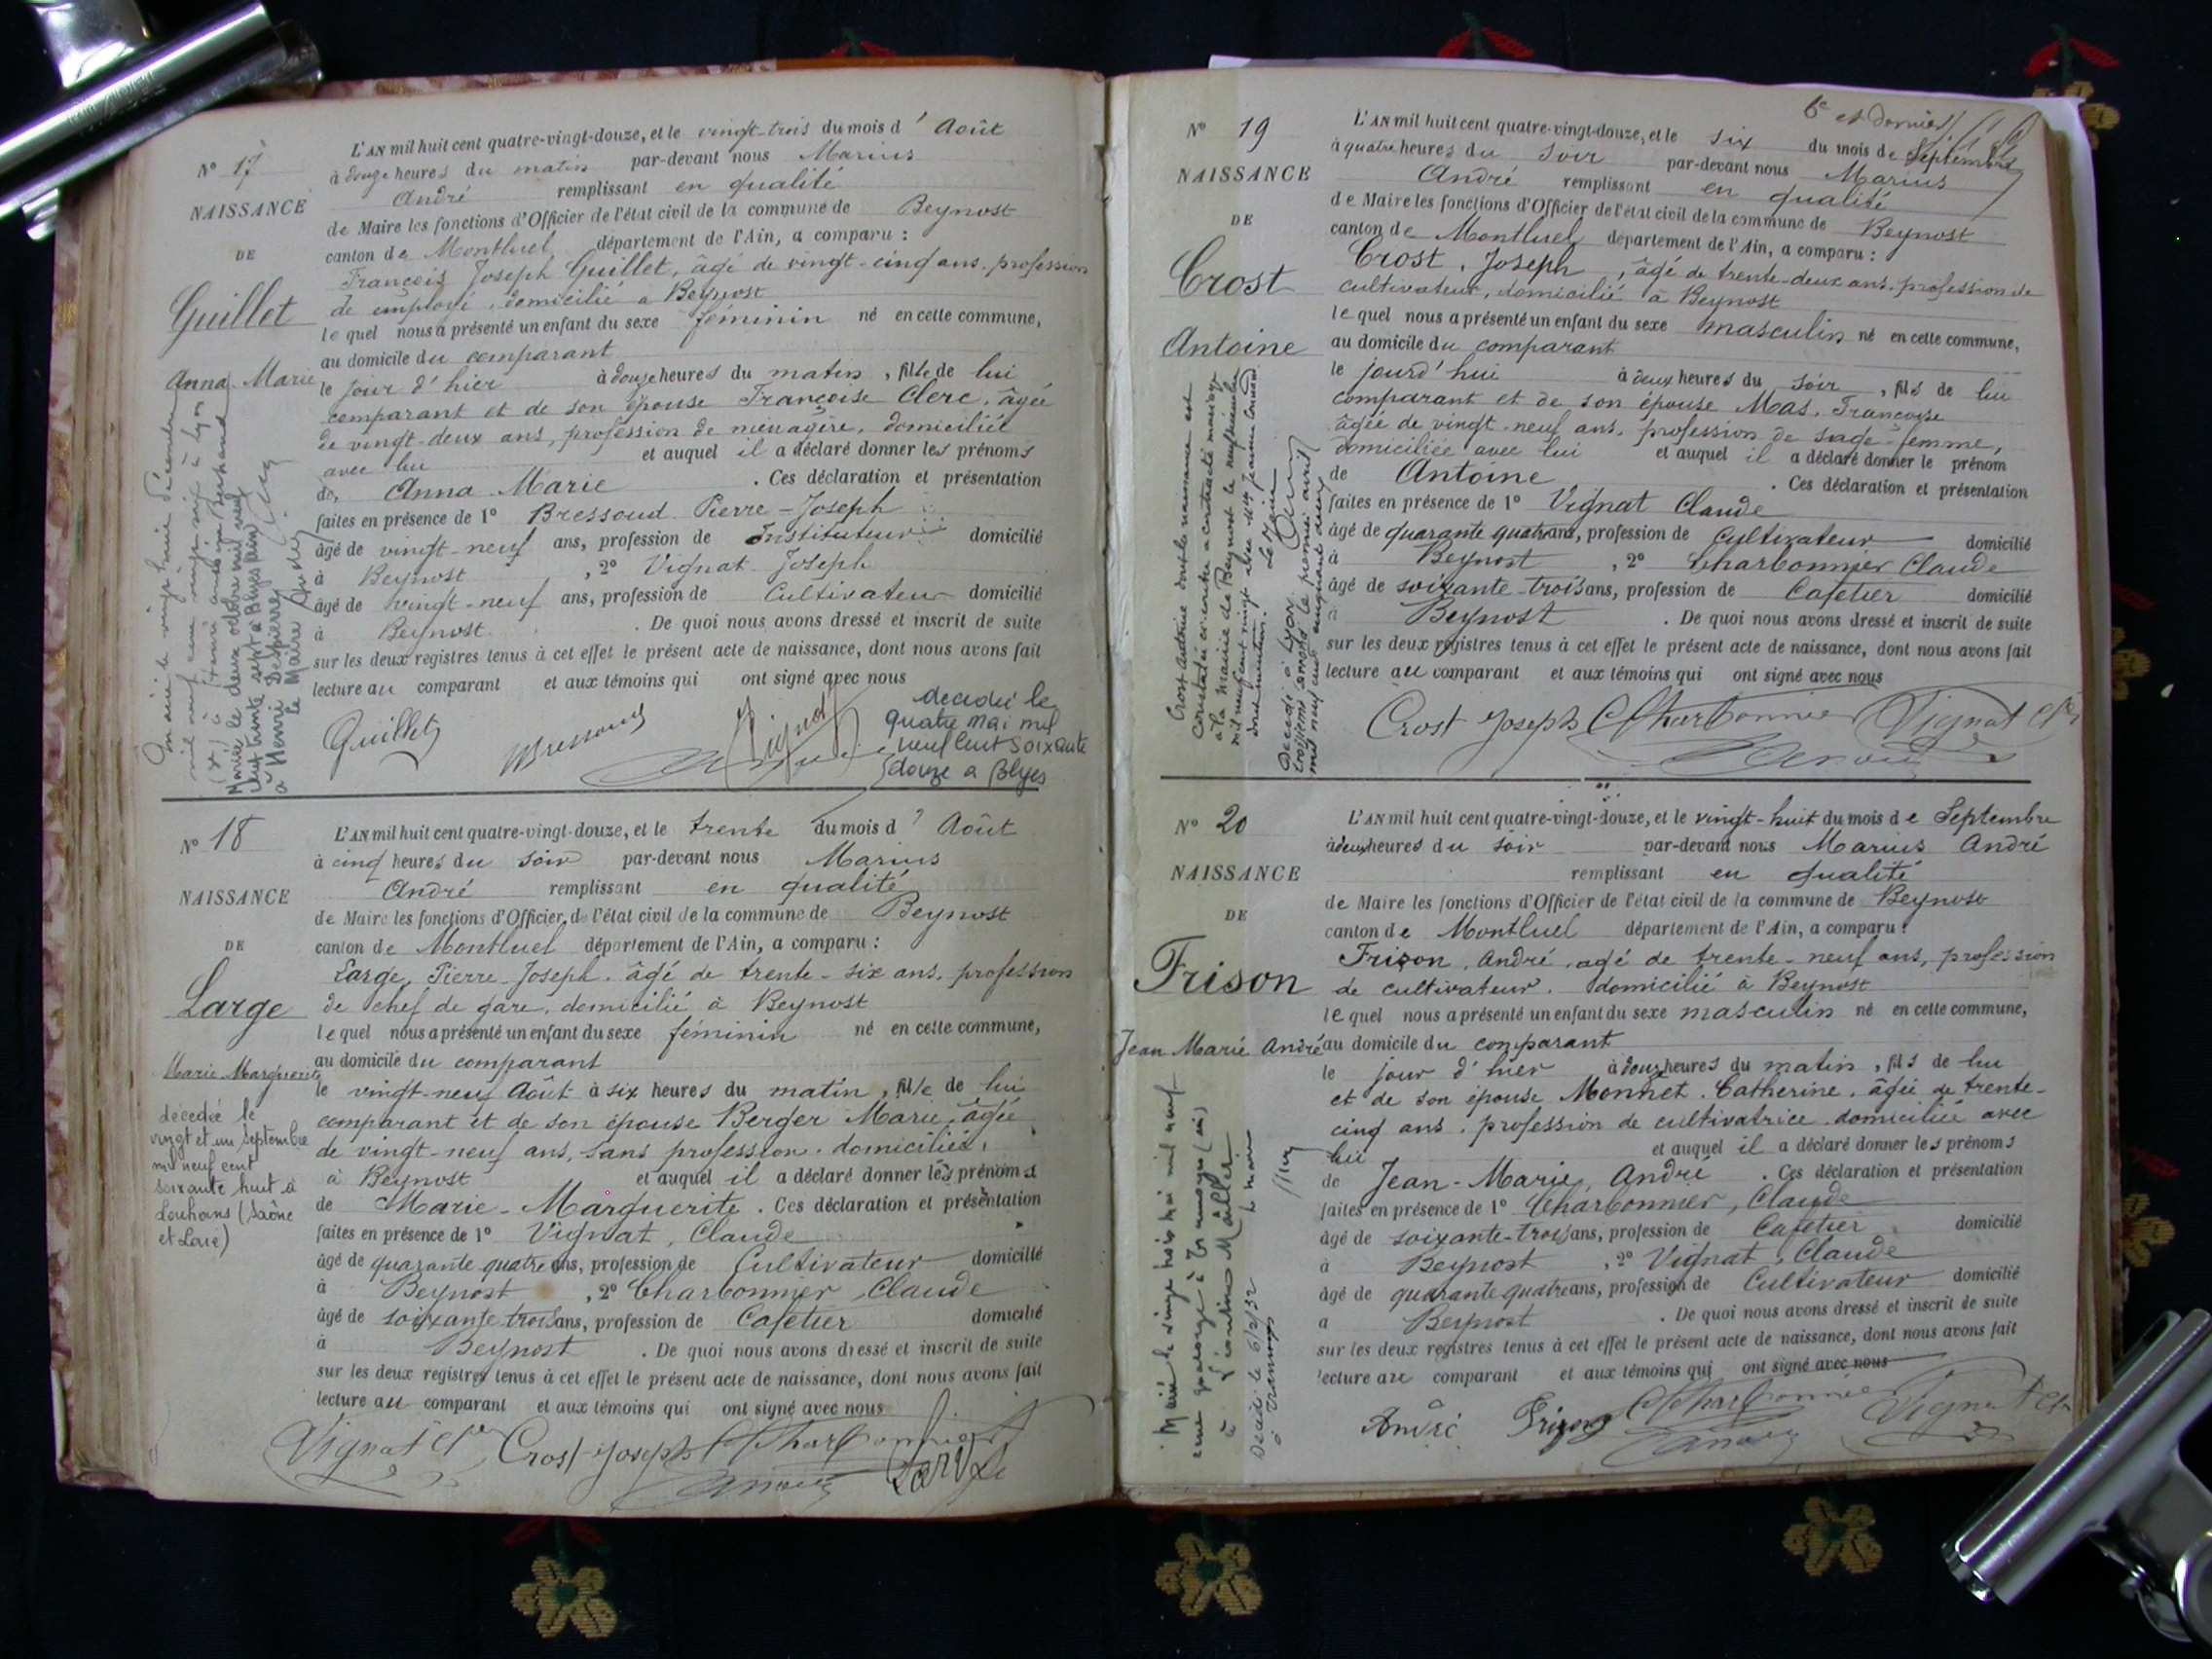 N° 17
NAISSANCE
DE
Guillet
Anna Marie
L'AN mil huit cent quatre-vingt-douze, et le vingt-trois du mois d' Août
à douze heures du matin par-devant nous Marius
André remplissant en qualité
de Maire les fonctions d'Officier de l'état civil de la commune de Beynost
canton de Montluel département de l'Ain, a comparu :
François Joseph Guillet, âgé de vingt-cinq ans, profession
de employé, domicilié à Beynost
lequel nous a présenté un enfant du sexe féminin né en cette commune,
au domicile du comparant
le jour d'hier à douze heures du matin, fille de lui
comparant et de son épouse Françoise Clerc, âgée
de vingt-deux ans, profession de ménagère, domiciliée
avec lui et auquel il a déclaré donner les prénoms
de Anna Marie . Ces déclaration et présentation
faites en présence de 1° Bressoud Pierre-Joseph
âgé de vingt-neuf ans, profession de Instituteur domicilié
à Beynost , 2° Vignat Joseph
âgé de vingt-neuf ans, profession de Cultivateur domicilié
à Beynost . De quoi nous avons dressé et inscrit de suite
sur les deux registres tenus à cet effet le présent acte de naissance, dont nous avons fait
lecture au comparant et aux témoins qui ont signé avec nous
Guillet Bressoud Vignat
décédée le
quatre mai mil
neuf cent soixante
douze à Blyes
Mariée le deux octobre mil neuf
cent trente sept à Blyes (Ain)
à Henri Despierres
Le Maire
N° 18
NAISSANCE
DE
Large
Marie Marguerite
décédée le
vingt et un septembre
mil neuf cent
soixante huit à
Louhans (Saône
et Loire)
L'AN mil huit cent quatre-vingt-douze, et le trente du mois d' Août
à cinq heures du soir par-devant nous Marius
André remplissant en qualité
de Maire les fonctions d'Officier de l'état civil de la commune de Beynost
canton de Montluel département de l'Ain, a comparu :
Large, Pierre-Joseph, âgé de trente-six ans, profession
de chef de gare, domicilié à Beynost
lequel nous a présenté un enfant du sexe féminin né en cette commune,
au domicile du comparant
le vingt-neuf Août à six heures du matin, fille de lui
comparant et de son épouse Berger Marie, âgée
de vingt-neuf ans, sans profession, domiciliée
à Beynost et auquel il a déclaré donner les prénoms
de Marie-Marguerite . Ces déclaration et présentation
faites en présence de 1° Vignat, Claude
âgé de quarante quatre ans, profession de Cultivateur domicilié
à Beynost , 2° Charbonnier Claude
âgé de soixante trois ans, profession de Cafetier domicilié
à Beynost . De quoi nous avons dressé et inscrit de suite
sur les deux registres tenus à cet effet le présent acte de naissance, dont nous avons fait
lecture au comparant et aux témoins qui ont signé avec nous
Vignat Cde Crost Joseph Charbonnier Large
6e et dernier
N° 19
NAISSANCE
DE
Crost
Antoine
L'AN mil huit cent quatre-vingt-douze, et le six du mois de Septembre
à quatre heures du soir par-devant nous Marius
André remplissant en qualité
de Maire les fonctions d'Officier de l'état civil de la commune de Beynost
canton de Montluel département de l'Ain, a comparu :
Crost, Joseph, âgé de trente-deux ans, profession de
cultivateur, domicilié à Beynost
lequel nous a présenté un enfant du sexe masculin né en cette commune,
au domicile du comparant
le jourd'hui à deux heures du soir, fils de lui
comparant et de son épouse Mas, Françoise
âgée de vingt-neuf ans, profession de sage-femme,
domiciliée avec lui et auquel il a déclaré donner le prénom
de Antoine . Ces déclaration et présentation
faites en présence de 1° Vignat Claude
âgé de quarante quatre ans, profession de Cultivateur domicilié
à Beynost , 2° Charbonnier Claude
âgé de soixante-trois ans, profession de Cafetier domicilié
à Beynost . De quoi nous avons dressé et inscrit de suite
sur les deux registres tenus à cet effet le présent acte de naissance, dont nous avons fait
lecture au comparant et aux témoins qui ont signé avec nous
Crost Joseph Charbonnier Vignat Cde
Crost Antoine dont la naissance est
constatée ci-contre a contracté mariage
à la mairie de Beynost le neuf
mil neuf cent vingt
Le Maire
Décédé à Lyon
troisième arrond. le premier avril
mil neuf cent cinquante deux
N° 20
NAISSANCE
DE
Frison
Jean Marie André
L'AN mil huit cent quatre-vingt-douze, et le vingt-huit du mois de Septembre
à deux heures du soir par-devant nous Marius André
remplissant en qualité
de Maire les fonctions d'Officier de l'état civil de la commune de Beynost
canton de Montluel département de l'Ain, a comparu :
Frison, André, âgé de trente-neuf ans, profession
de cultivateur, domicilié à Beynost
lequel nous a présenté un enfant du sexe masculin né en cette commune,
au domicile du comparant
le jour d'hier à douze heures du matin, fils de lui
et de son épouse Monnet, Catherine, âgée de trente-
cinq ans, profession de cultivatrice, domiciliée avec
lui et auquel il a déclaré donner les prénoms
de Jean-Marie, André . Ces déclaration et présentation
faites en présence de 1° Charbonnier, Claude
âgé de soixante-trois ans, profession de Cafetier domicilié
à Beynost , 2° Vignat, Claude
âgé de quarante quatre ans, profession de Cultivateur domicilié
à Beynost . De quoi nous avons dressé et inscrit de suite
sur les deux registres tenus à cet effet le présent acte de naissance, dont nous avons fait
lecture au comparant et aux témoins qui ont signé avec nous
André Frison Charbonnier Vignat Cde
Marié le vingt trois mai mil neuf
cent quatorze à Tramoyes (Ain)
à Léontine
Le Maire
Décédé le 6/2/32
à Tramoyes